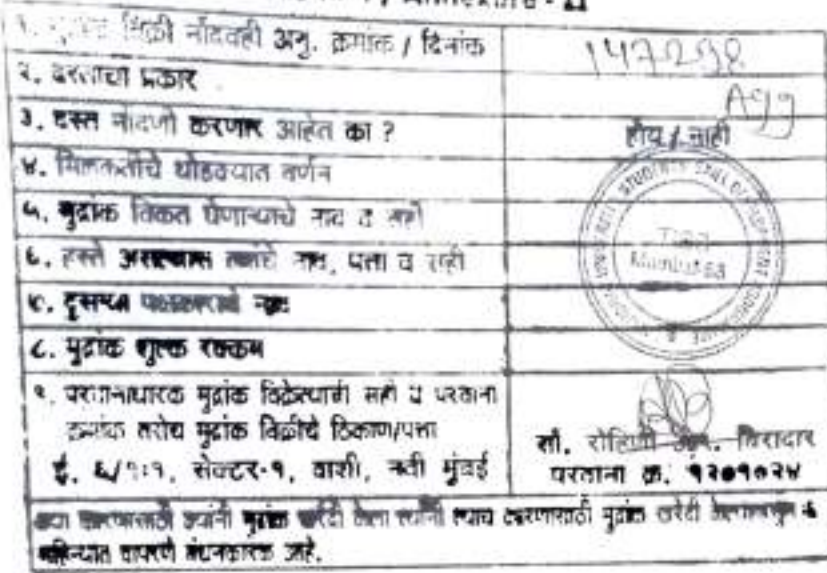 मुद्रांक विक्री नोंदवही अनु. क्रमांक / दिनांक 147298
२. दस्ताचा प्रकार Agg
३. दस्त नोंदणी करणार आहेत का ? होय / नाही
४. मिळकतीचे थोडक्यात वर्णन
५. मुद्रांक विकत घेणाऱ्याचे नाव व सही
६. हस्ते असल्यास त्यांचे नाव, पत्ता व सही
७. दुसऱ्या पक्षकाराचे नाव
८. मुद्रांक शुल्क रक्कम
९. परवानाधारक मुद्रांक विक्रेत्याची सही व परवाना
क्रमांक तसेच मुद्रांक विक्रीचे ठिकाण/पत्ता
ई. ६/१:१, सेक्टर-१, वाशी, नवी मुंबई
सौ. रोहिणी आर. बिरादार
परवाना क्र. १२०१०२४
ज्या कारणासाठी ज्यांनी मुद्रांक खरेदी केला त्यांनी त्याच कारणासाठी मुद्रांक खरेदी केल्यापासून ६
महिन्यात वापरणे बंधनकारक आहे.